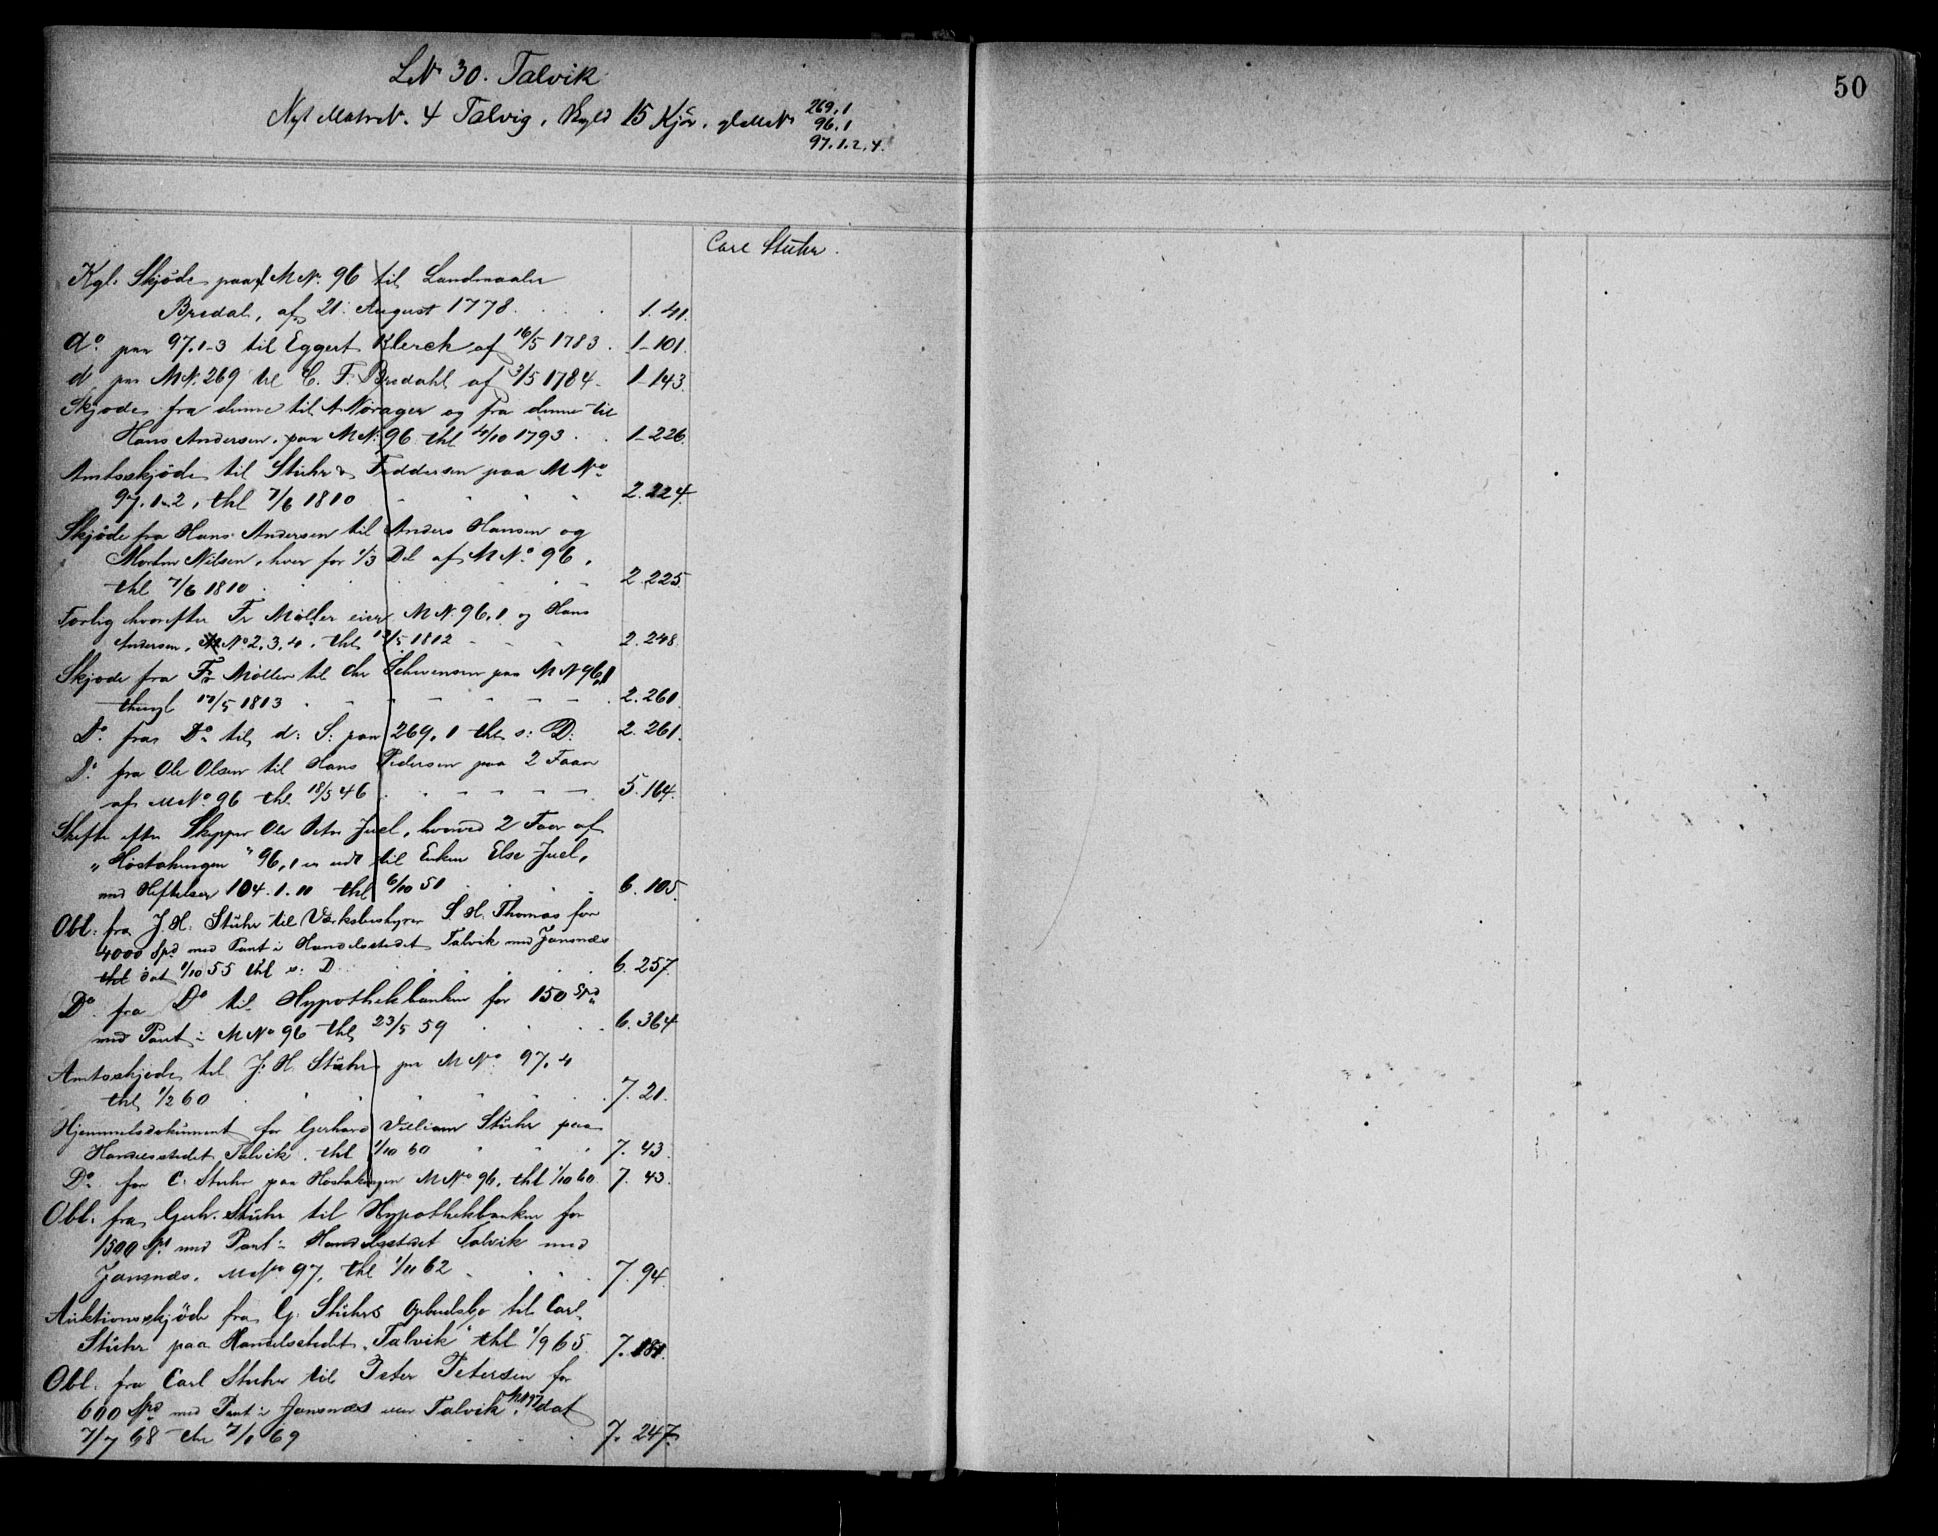 50
LNr 30. Talvik
Nyt MatrN. 4 Talvig, Skyld 15 Kjør, glMNr 269,1
96,1
97.1.2.4.
Carl Stuhr.
Kgl. Skjøde paa MNr. 96 til Landmaaler
Bredal, af 21. August 1778. 1. 41.
do. paa 97.1-3 til Eggert Klerck af 16/5 1783. 1-101.
do paa MN. 269 til C. F. Bredahl af 3/5 1784 1-143.
Skjøde fra denne til A Nørager og fra denne til
Hans Andersen, paa MN: 96 thl 4/10 1793. 1-226.
Amtsskjøde til Stuhr & Feddersen paa MNo
97.1-2, thl 7/6 1810 2.224.
Skjøde fra Hans Andersen til Anders Hansen og
Morten Nilsen, hver for 1/3 Del af MNo. 96,
thl 7/6 1810. 2.225.
Forlig hvorefter Fr Møller eier MN. 96,1 og Hans
Andersen, No 2.3.4. thl 12/5 1812 2.248.
Skjøde fra Fr Møller til Chr Schevensen paa MN 96,1
thingl 12/5 1813 2.261.
Do. fra Do til d: S: paa 269,1 thl s: D: 2.261.
Do. fra Ole Olsen til Hans Pedersen paa 2 Faar
af MNo. 96 thl 18/5 46 5.164.
Skifte efter Skipper Ole Peter Juel, hvorved 2 Faar af
"Høstakengen" 96,1 er udl til Enken Else Juel,
med Heftelser 104.1.11 thl 6/10 51 6.105.
Obl. fra J. H. Stuhr til Værksbestyrer S. H. Thomas for
4000 Spd med Pant i Handelsstedet Talvik med Jansnæs
thl dat 1/10 55 thl s: D. 6.257.
Do. fra Do til Hypothekbanken for 150 Spd
med Pant i MNo 96 thl 23/5 59 6.364
Amtsskjøde til J. H. Stuhr paa MNo. 97,4
thl 1/2 60 7.21.
Hjemmelsdokument for Gerhard William Stuhr paa
Handelsstedet Talvik. thl 1/10 60 7.43.
Do. for C. Stuhr paa Høstakengen MNo 96. thl 1/10 60 7.43.
Obl. fra Gerh. Stuhr til Hypothekbanken for
1500 Spd med Pant i Handelsstedet Talvik med
Jansnæs, MNo 97, thl 1/11 62 7.94.
Auktionsskjøde fra G. Stuhrs Opbudsbo til Carl
Stuhr paa Handelsstedet "Talvik" thl 1/9 65 7.181.
Obl. fra Carl Stuhr til Peter Petersen for
600 Spd med Pant i Jansnæs ved Talvik, MN 97 dat
7/7 68 thl 7/1 69 7.247.